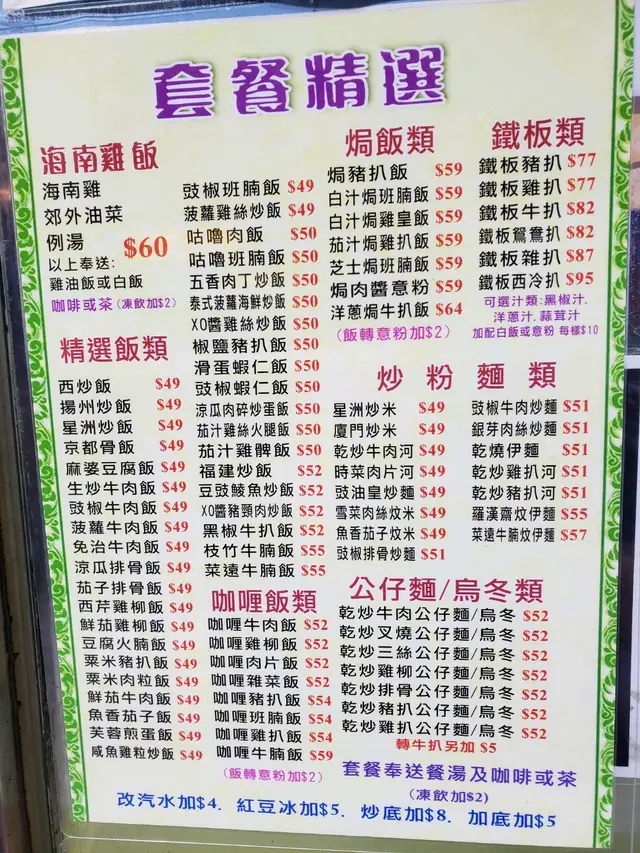 套餐精選
海南雞飯
海南雞
郊外油菜
例湯
$60
以上奉送:
雞油飯或白飯
咖啡或茶(凍飲加$2)
精選飯類
西炒飯 $49
揚州炒飯 $49
星洲炒飯 $49
京都骨飯 $49
麻婆豆腐飯 $49
生炒牛肉飯 $49
豉椒牛肉飯 $49
菠蘿牛肉飯 $49
免治牛肉飯 $49
涼瓜排骨飯 $49
茄子排骨飯 $49
西芹雞柳飯 $49
鮮茄雞柳飯 $49
豆腐火腩飯 $49
粟米豬扒飯 $49
粟米肉粒飯 $49
鮮茄牛肉飯 $49
魚香茄子飯 $49
芙蓉煎蛋飯 $49
咸魚雞粒炒飯 $49
豉椒班腩飯 $49
菠蘿雞絲炒飯 $49
咕嚕肉飯 $50
咕嚕班腩飯 $50
五香肉丁炒飯 $50
泰式菠蘿海鮮炒飯 $50
XO醬雞絲炒飯 $50
椒鹽豬扒飯 $50
滑蛋蝦仁飯 $50
豉椒蝦仁飯 $50
涼瓜肉碎炒蛋飯 $50
茄汁雞絲火腿飯 $50
茄汁雞髀飯 $50
福建炒飯 $52
豆豉鯪魚炒飯 $52
XO醬豬頸肉炒飯 $52
黑椒牛扒飯 $52
枝竹牛腩飯 $55
菜遠牛腩飯 $55
咖喱飯類
咖喱牛肉飯 $52
咖喱雞柳飯 $52
咖喱肉片飯 $52
咖喱雜菜飯 $52
咖喱豬扒飯 $54
咖喱班腩飯 $54
咖喱雞扒飯 $54
咖喱牛腩飯 $59
(飯轉意粉加$2)
焗飯類
焗豬扒飯 $59
白汁焗班腩飯 $59
白汁焗雞皇飯 $59
茄汁焗雞扒飯 $59
芝士焗班腩飯 $59
焗肉醬意粉 $59
洋蔥焗牛扒飯 $64
(飯轉意粉加$2)
鐵板類
鐵板豬扒 $77
鐵板雞扒 $77
鐵板牛扒 $82
鐵板鴛鴦扒 $82
鐵板雜扒 $87
鐵板西冷扒 $95
可選汁類:黑椒汁.
洋蔥汁.蒜茸汁
加配白飯或意粉 每樣$10
炒粉麵類
星洲炒米 $49
廈門炒米 $49
乾炒牛肉河 $49
時菜肉片河 $49
豉油皇炒麵 $49
雪菜肉絲炆米 $49
魚香茄子炆米 $49
豉椒排骨炒麵 $51
豉椒牛肉炒麵 $51
銀芽肉絲炒麵 $51
乾燒伊麵 $51
乾炒雞扒河 $51
乾炒豬扒河 $51
羅漢齋炆伊麵 $55
菜遠牛腩炆伊麵 $57
公仔麵/烏冬類
乾炒牛肉公仔麵/烏冬 $52
乾炒叉燒公仔麵/烏冬 $52
乾炒三絲公仔麵/烏冬 $52
乾炒雞柳公仔麵/烏冬 $52
乾炒排骨公仔麵/烏冬 $52
乾炒豬扒公仔麵/烏冬 $52
乾炒雞扒公仔麵/烏冬 $52
轉牛扒另加 $5
套餐奉送餐湯及咖啡或茶
(凍飲加$2)
改汽水加$4. 紅豆冰加$5. 炒底加$8. 加底加$5